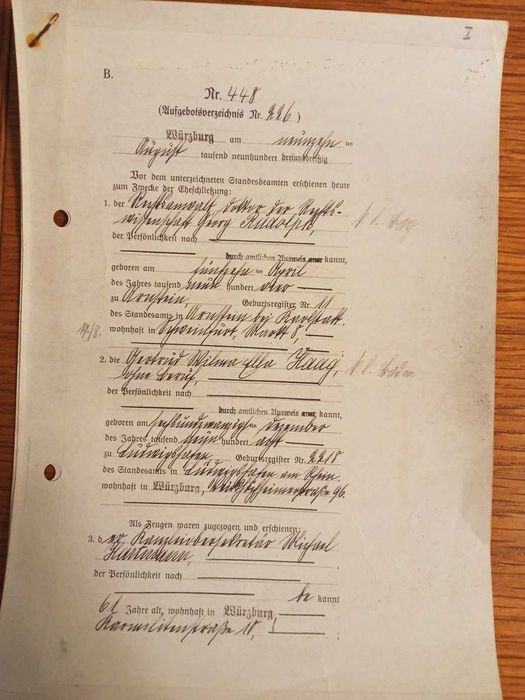 I
B.
Nr. 448
(Aufgebotsverzeichnis Nr. 226)
Würzburg am neunzehnten
August tausend neunhundert dreiunddreißig
Vor dem unterzeichneten Standesbeamten erschienen heute
zum Zwecke der Eheschließung:
1. der Rechtsanwalt, Doktor der Rechts-
wissenschaft Georg Rudolph,
der Persönlichkeit nach
durch amtlichen Ausweis anerkannt,
geboren am fünfzehnten April
des Jahres tausend neun hundert vier
zu Arnstein, Geburtsregister Nr. 11
des Standesamts in Arnstein bei Karlstadt.
19/8. wohnhaft in Schweinfurt, Markt 8,
2. die Gertrud Wilma Ella Haag,
ohne Beruf,
der Persönlichkeit nach
durch amtlichen Ausweis anerkannt,
geboren am sechsundzwanzigsten Dezember
des Jahres tausend neun hundert acht
zu Ludwigshafen, Geburtsregister Nr. 2218
des Standesamts in Ludwigshafen am Rhein.
wohnhaft in Würzburg, Veitshöchheimerstraße 96.
Als Zeugen waren zugezogen und erschienen:
3. der Kanzleiobersekretär Michael
Hartmann,
der Persönlichkeit nach
be kannt
61 Jahre alt, wohnhaft in Würzburg,
Karmelitenstraße 18,